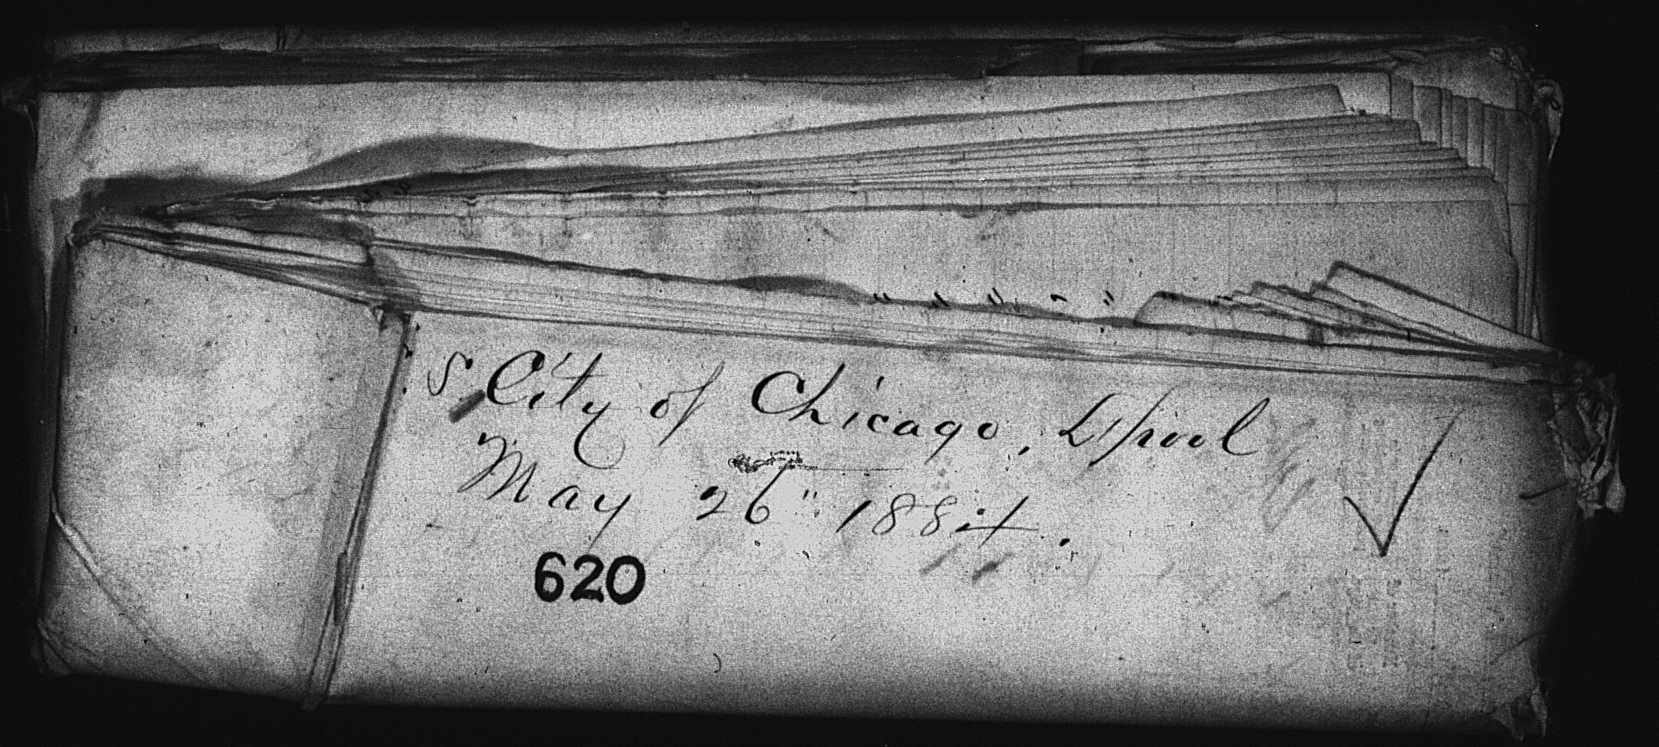 S. City of Chicago, L'pool
May 26" 1884.
620